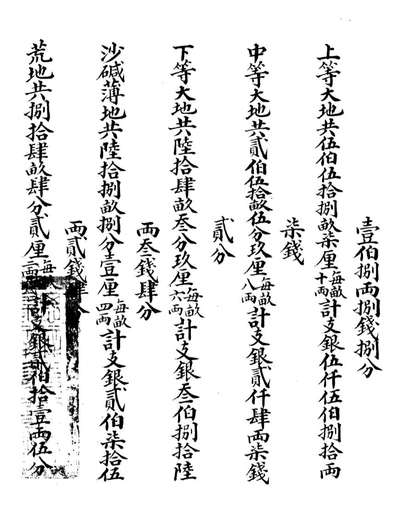 壹伯捌兩捌錢捌分
上等大地共伍伯伍拾捌畝柒厘每畝十兩計支銀伍仟伍伯捌拾兩
柒錢
中等大地共貳伯伍拾畝伍分玖厘每畝八兩計支銀貳仟肆兩柒錢
貳分
下等大地共陸拾肆畝叁分玖厘每畝六兩計支銀叁伯捌拾陸
兩叁錢肆分
沙碱薄地共陸拾捌畝捌分壹厘每畝四兩計支銀貳伯柒拾伍
兩貳錢肆分
荒地共捌拾肆畝肆分貳厘每計支銀貳伯拾壹兩伍分